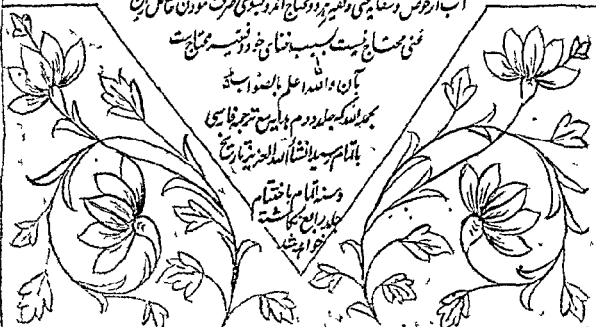 آب از حوض و سقایه غنی و فقیر هر دو محتاج اند و بسوی صرف نمودن حاصل زمین
غنی محتاج نیست بسبب غنای خود و فقیر محتاج ست
بآن والله اعلم بالصواب
بحمد الله که جلد دوم هدایه مع ترجمه فارسی
باتمام رسید انشاء الله العزیز تاریخ
و سنه اتمام باختتام
جلد رابع نگاشته
خواهد شد